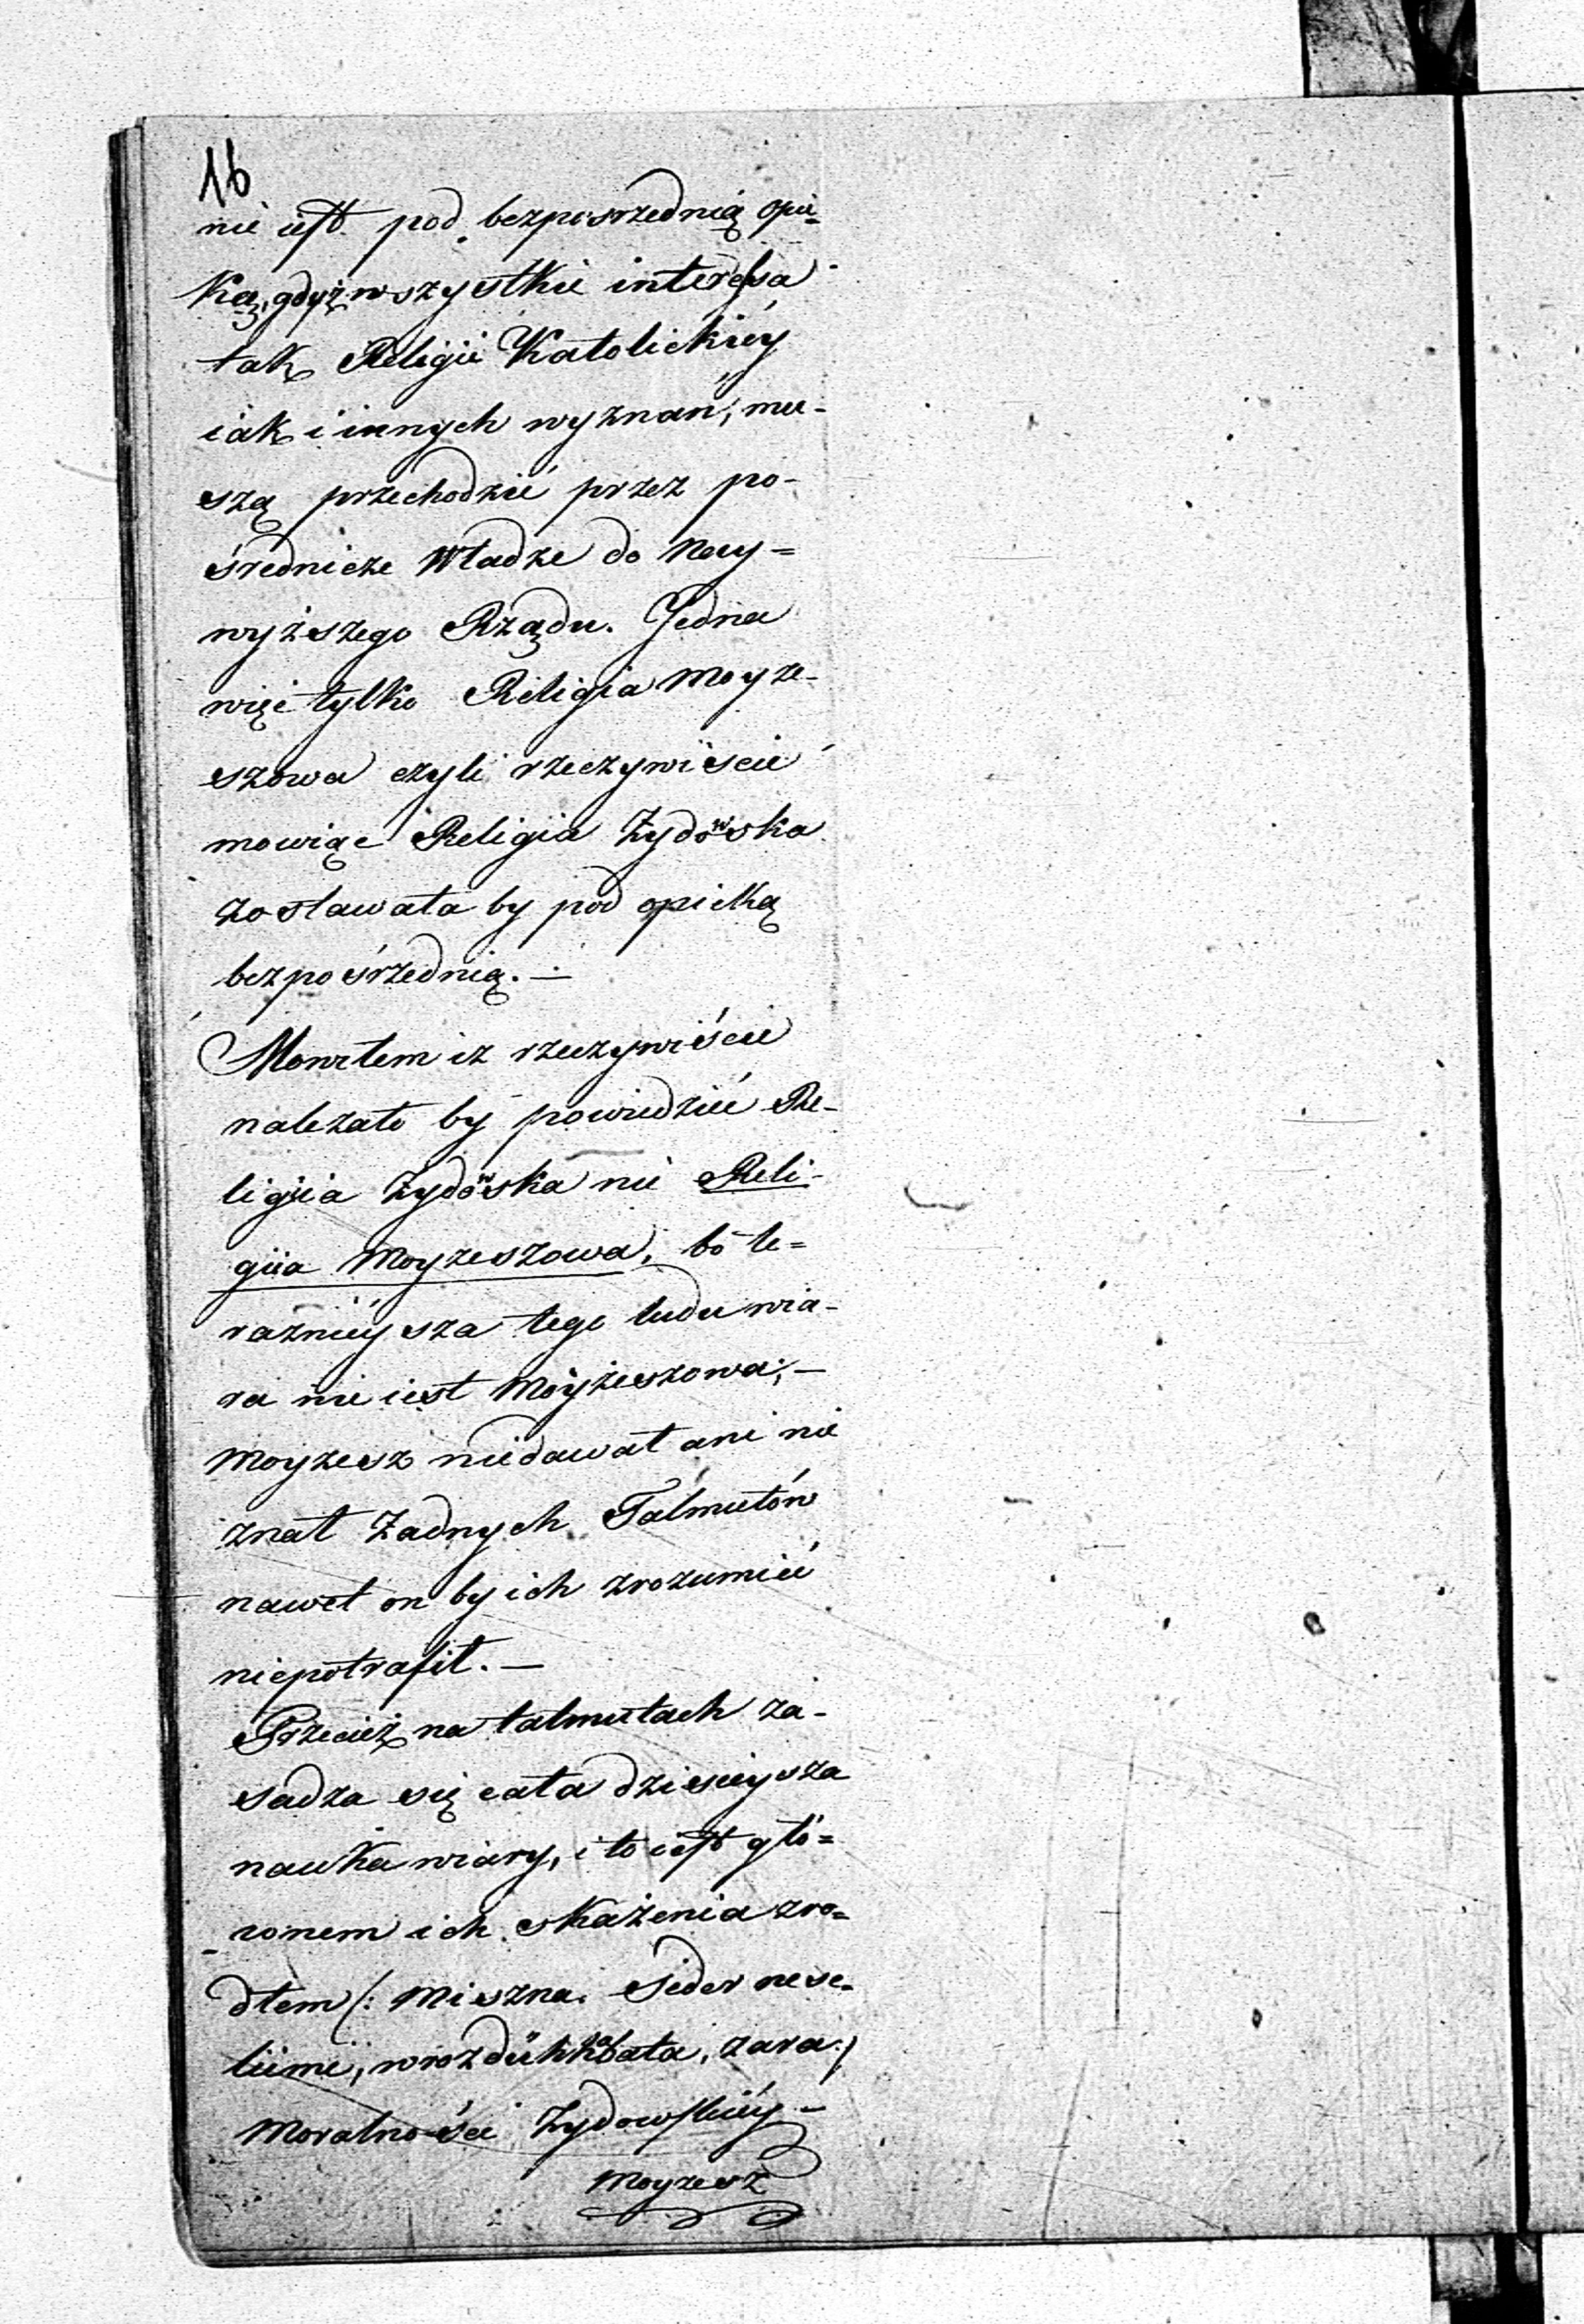 16
nie iest pod bezpośrzednią opie-
ką, gdyż wszystkie interessa
tak Religii Katolickiéy
iak i innych wyznań, mu-
szą przechodzić przez po-
średnicze Władze do Nay=
wyższego Rządu. Jedna
więc tylko Religia Moyze-
szowa czyli rzeczywiście
mowiąc Religia Żydowska
zostawała by pod opieką
bezpośrzednią. —
Mowiłem iż rzeczywiście
należało by powiedzieć Re-
ligiia Żydowska nie Reli-
giia Moyzeszowa, bo te=
raznieysza tego ludu wia-
ra nie iest Moyżeszowa; —
Moyzesz niedawał ani nie
znał Żadnych Talmutów
nawet on by ich zrozumieć
niepotrafił. —
Przecież na talmutach za-
sadza się cała dzisieysza
nauka wiary, i to iest głó=
wnem ich skażenia zro=
dłem /: Miszna. Seder neze-
wrozdük zara :/
Moralności Żydowskiéy —
Moyzesz